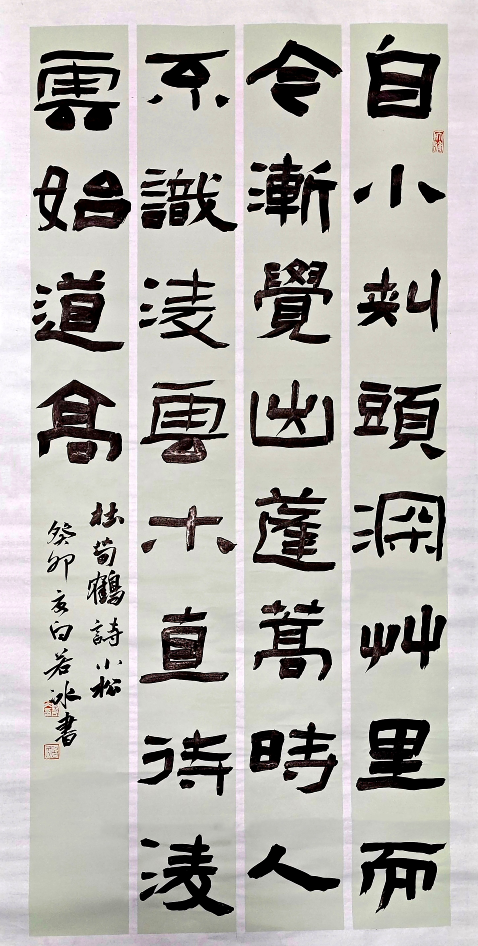 自小刾頭深艸里而
今漸覺出蓬蒿時人
不識凌雲木直待凌
雲始道高
杜荀鶴詩小松
癸卯亥白若冰書